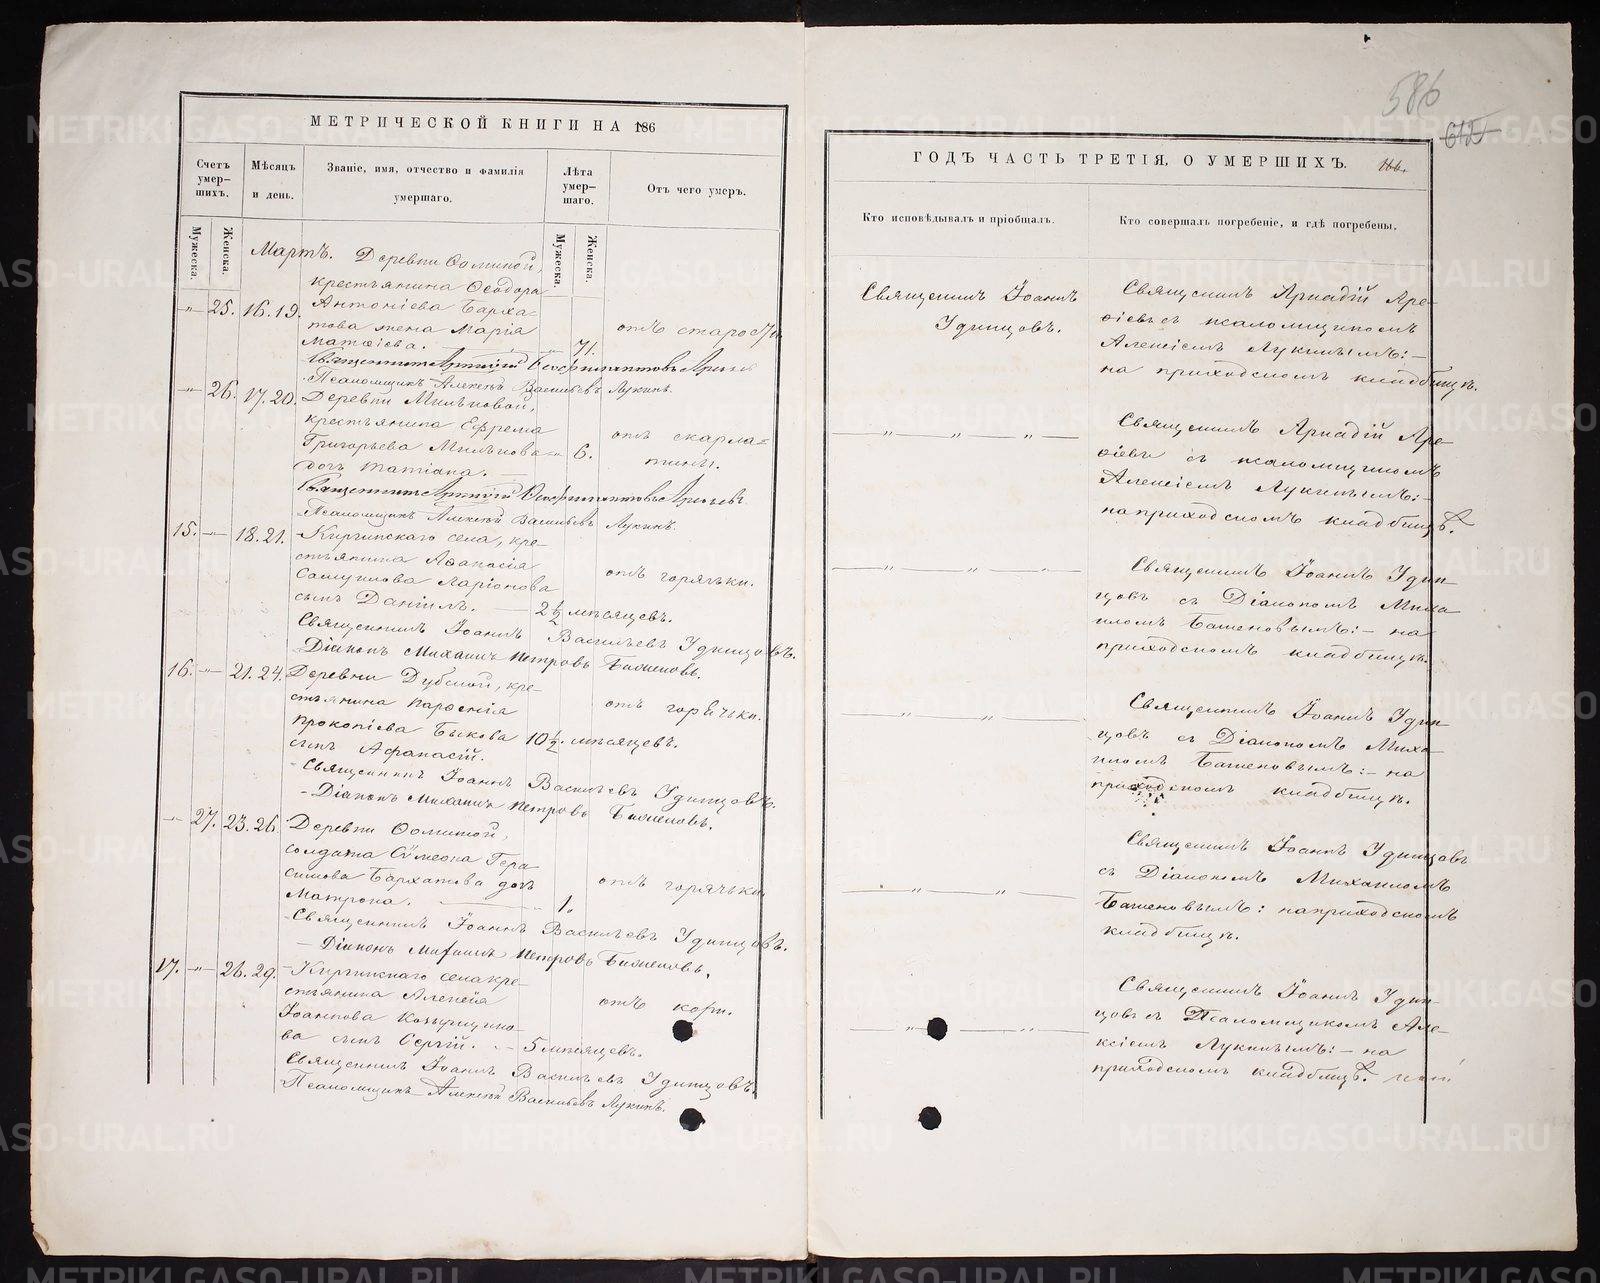 МЕТРИЧЕСКОЙ КНИГИ НА 186
Счетъ умер-шихъ.
Мѣсяцъ и день.
Званіе, имя, отчество и фамилія умершаго.
Лѣта умер-шаго.
Отъ чего умеръ.
Мужеска.
Женска.
Мужеска.
Женска.
Мартъ. Деревни Ѳоминой,
крестьянина Ѳеодора
-"- 25. 16. 19. Антоніева Барха-
това жена Марія
Матѳіева. 71. отъ старости
Псаломщикъ Алексѣй Васильевъ Лукинъ.
-"- 26. 17. 20. Деревни Мильковой,
крестьянина Ефрема
Григорьева Милькова 6. отъ скарла=
дочь Татіана. тины.
Псаломщикъ Алексѣй Васильевъ Лукинъ.
15. -"- 18. 21. Киргинскаго села, кре-
стьянина Аѳанасія
Самуилова Ларіонова отъ горячьки.
сынъ Даніилъ. 2½ мѣсяцевъ.
Священникъ Іоаннъ Васильевъ Удинцовъ.
Діаконъ Михаилъ Петровъ Баженовъ.
16. -"- 21. 24. Деревни Дубской, кре-
стьянина Парѳенія отъ горячьки.
Прокопіева Быкова 10½ мѣсяцевъ.
сынъ Афанасій.
Священникъ Іоаннъ Васильевъ Удинцовъ.
Діаконъ Михаилъ Петровъ Баженовъ.
-"- 27. 23. 26. Деревни Ѳоминой,
солдата Сѵмеона Гера
симова Бархатова дочь отъ горячьки.
Матрона. 1.
Священникъ Іоаннъ Васильевъ Удинцовъ.
Діаконъ Михаилъ Петровъ Баженовъ.
17. -"- 26. 29. Киргинскаго села кре-
стьянина Алексѣя отъ кори.
Іоаннова
ва сынъ Сергій. 5 мѣсяцевъ.
Священникъ Іоаннъ Васильевъ Удинцовъ.
Псаломщикъ Алексѣй Васильевъ Лукинъ.
586
ГОДЪ ЧАСТЬ ТРЕТІЯ, О УМЕРШИХЪ.
Кто исповѣдывалъ и пріобщалъ.
Кто совершалъ погребеніе, и гдѣ погребены.
Священникъ Іоаннъ
Удинцовъ.
Священникъ Аркадій Аре-
ѳьевъ съ псаломщикомъ
Алексіемъ Лукинымъ:-
на приходскомъ кладбищѣ.
Священникъ Аркадій Аре-
ѳьевъ съ псаломщикомъ
Алексіемъ Лукинымъ:-
на приходскомъ кладбищѣ.
Священникъ Іоаннъ Удин-
цовъ съ Діакономъ Миха
иломъ Баженовымъ:- на
приходскомъ кладбищѣ.
Священникъ Іоаннъ Удин-
цовъ съ Діакономъ Миха-
иломъ Баженовымъ:- на
приходскомъ кладбищѣ.
Священникъ Іоаннъ Удинцовъ
съ Діакономъ Михаиломъ
Баженовымъ: на приходскомъ
кладбищѣ.
Священникъ Іоаннъ Удин-
цовъ съ Псаломщикомъ Але-
ксіемъ Лукинымъ:- на
приходскомъ кладбищѣ.